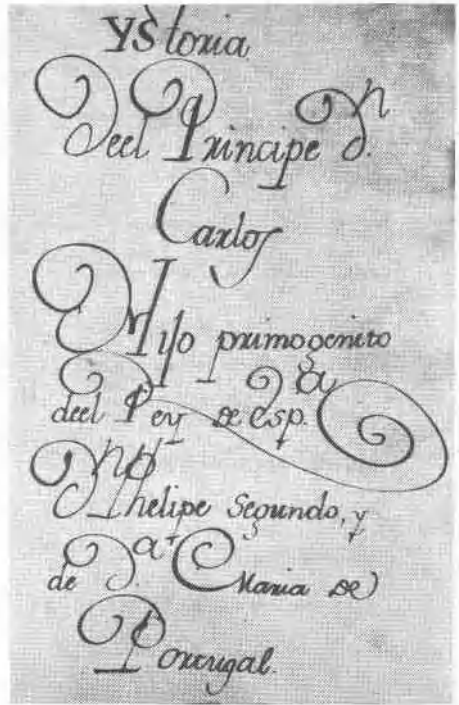 YStoria
deel Principe D.n
Carlos
Hijo primogenito
deel Rey de Esp.a
D.n Phelipe Segundo, y
de D.a Maria de
Portugal.